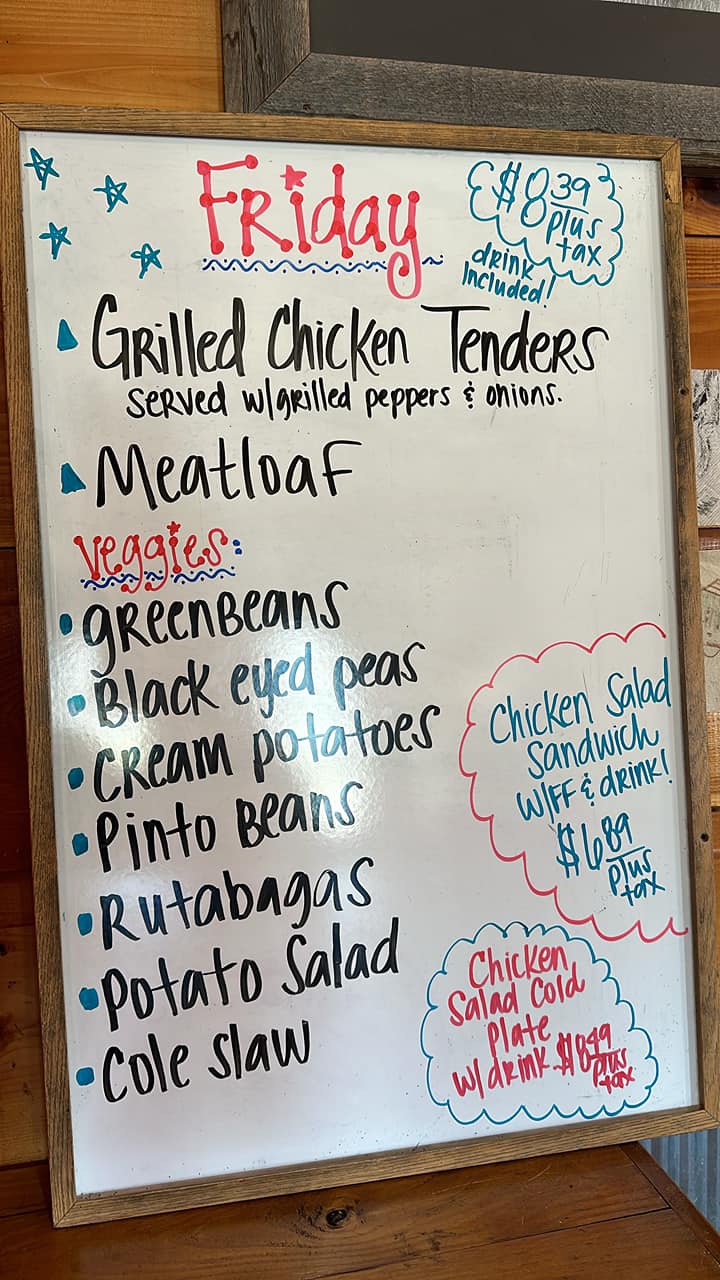 Friday
$8.39
plus
tax
drink
included!
Grilled Chicken Tenders
served w/grilled peppers & onions.
Meatloaf
Veggies:
greenBeans
Black eyed peas
Cream potatoes
Pinto Beans
Rutabagas
Potato Salad
Cole slaw
Chicken Salad
Sandwich
W/FF & drink!
$6.89
plus
tax
Chicken
Salad Cold
plate
w/ drink $8.49
plus
tax